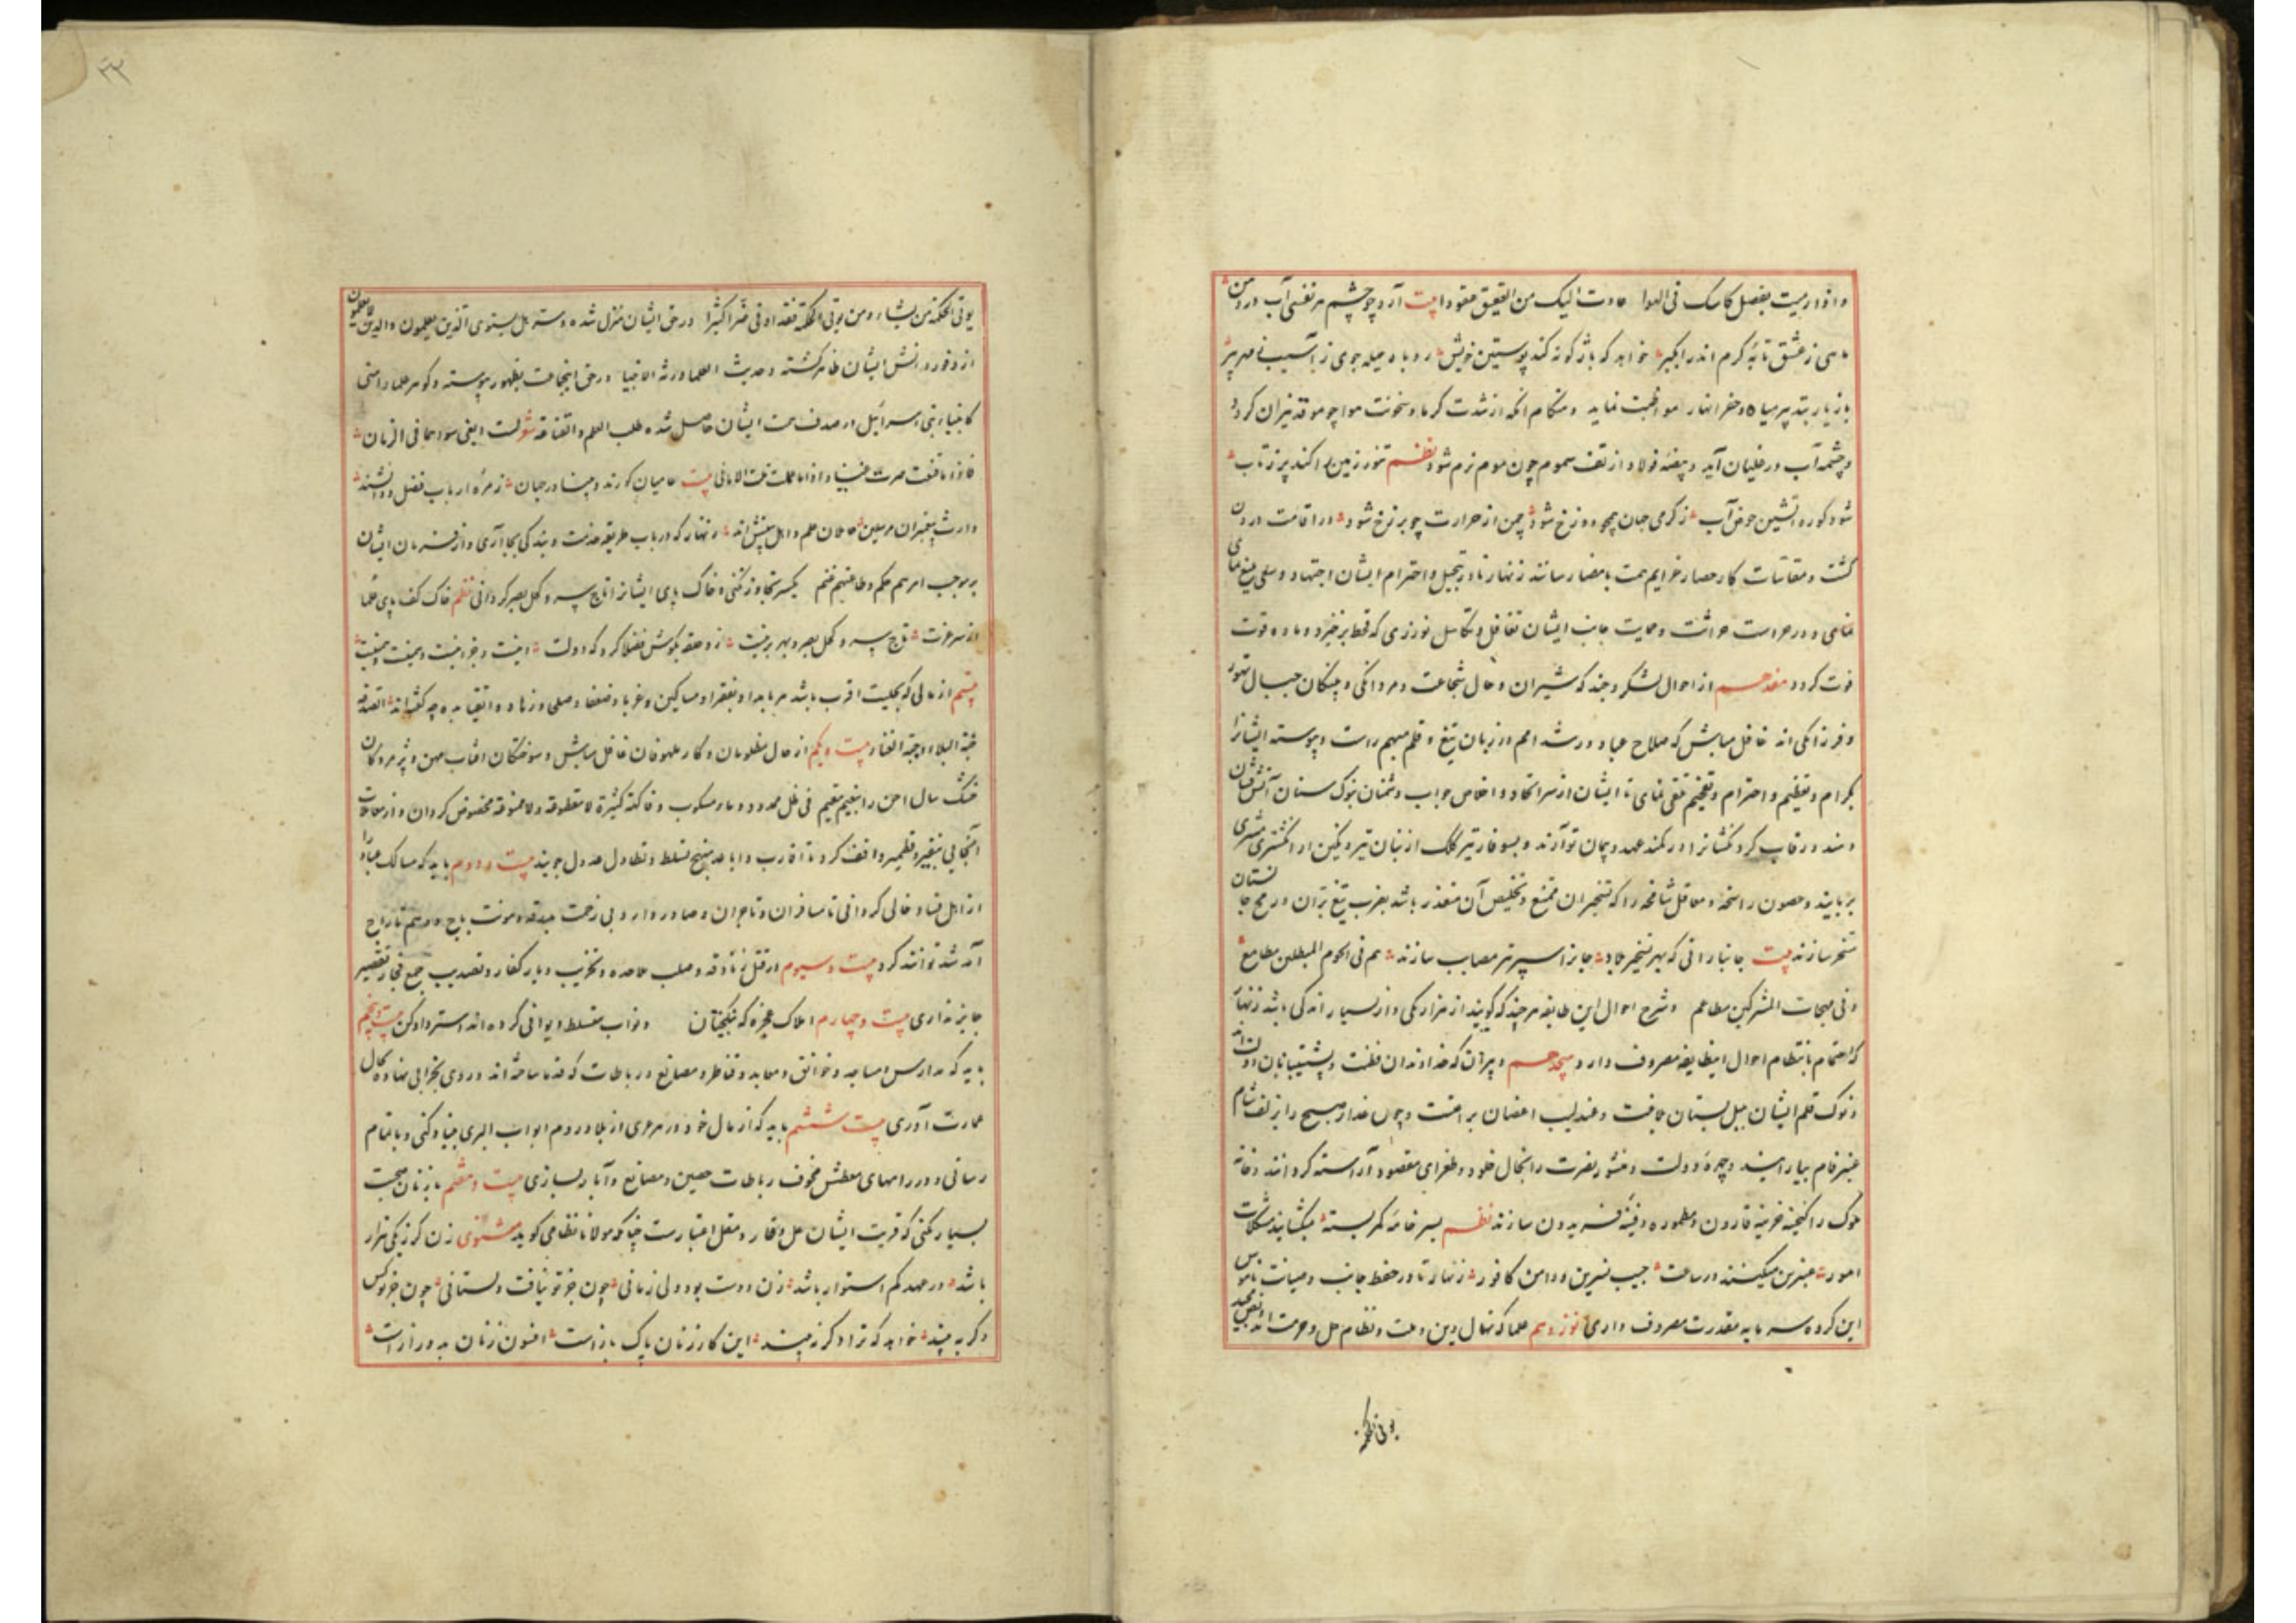 و اذا رمیت بفضل کاسک فی الهوا عادت الیک من العقیق عقودا بیت آرد چو چشم هر نفسی آب در دهن
ماهی ز عشق تابه گرم اندر آبگیر خواهد که باژگونه کند پوستین خویش روباه حیله جوی ز آسیب
بازیار بتدبیر میاه و حفر انهار مواظبت نماید و هنگام آنکه از شدت گرما و سخونت هوا چو موقد نیران گردد
و چشمه آب در غلیان آید و بیضه فولاد از تف سموم چون موم نرم شود نظم تنور زمین را کند پر ز تاب
شود کوره آتشین حوض آب ز گرمی جهان همچو دوزخ شود چمن از حرارت چو برزخ شود در اقامت درودن
کشت و مقاسات کار حصاد عزایم همت بامضا رساند زنهار تا در تبجیل و احترام ایشان اجتهاد و سعی بلیغ نمای
و در حراست حراثت و حمایت جانب ایشان تغافل و تکاسل نورزی که قحط برخیزد و ماده قوت
فوت گردد هفدهم از احوال لشکر و جند که شیران و حال شجاعت و مردانگی و پلنگان جبال تهور
و فرزانگی اند غافل مباش که صلاح عباد و رشد امم در زبان تیغ و قلم مبهم است و پیوسته ایشانرا
بکرام و تعظیم و احترام و تفخیم تلقی نمای تا ایشان از سر اتحاد و اخلاص جواب دشمنان بنوک سنان آتش فشان
دهند و رقاب گردنکشانرا در کمند عهد و پیمان تو آرند و بسوفار تیر کلک از بنان تیر و نگین از انگشتری مشتری
بربایند و حصون راسخه و معاقل شامخه را که تسخیر آن ممتنع و تخلیص آن متعذر باشد بضرب تیغ بران و رمح جانستان
مسخر سازند بیت جانبازانی که بهر تسخیر بلاد جانرا سپر تیر مصایب سازند هم فی لحوم المبطلین مطامع
و فی مهجات المشرکین مطاعم و شرح احوال این طایفه هر چند که گویند از هزار یکی و از بسیار اندکی باشد زنهار
که اهتمام بانتظام احوال این طایفه مصروف دار هجدهم دبیران که خداوندان فطنت و پشتیبانان دولت اند
و نوک قلم ایشان بلبل بستان بلاغت و عندلیب اغصان براعت و چون عذار صبح را بزلف شام
عنبر فام بیارایند و چهره دولت و منشور نصرت را بخال خلود و طغرای مقصود آراسته گردانند و خانه
ملوک را گنجینه خزینه قارون و مطموره دفینه فریدون سازند نظم بسر خامه کمر بسته میگشایند مشکلات
امور عنبرین میکنند در ساعت جیب نسرین و دامن کافور زنهار تا در حفظ جانب و صیانت ناموس
این گروه سرمایه مقدرت مصروف داری نوزدهم علما که نهال دین و ملت و نظام حل و حرمت اند و نص مجید
یؤتی الحکمه
۳۲
یؤتی الحکمة من یشاء و من یؤتی الحکمة فقد اوتی خیرا کثیرا در حق ایشان منزل شده و سر هل یستوی الذین یعلمون والذین لا یعلمون
از وفور دانش ایشان ظاهر گشته و حدیث العلماء ورثة الانبیا در حق اینجماعت بظهور پیوسته و گوهر علماء امتی
کانبیاء بنی اسرائیل از صدف همت ایشان حاصل شده طلب العلم و القناعة شغلت
فاذا ما قنعت صرت غنیا و اذا ما علمت نلت الامانی بیت عامیان کورند و بینا در جهان زمره ارباب فضل و دانشند
وارث پیغمبران مرسلین عاملان علم و اهل بینش اند زنهار که در باب طریقه خدمت و بندگی بجا آری و از فرمان ایشان
بر موجب امرهم حکم و طاعتهم غنم یکسر تجاوز نکنی و خاک پای ایشانرا تاج سر و کحل بصر گردانی نظم خاک کف پای علما
از سر عزت تاج سر و کحل بصر و بهر
بیستم از مالی که بحلیت اقرب باشد هر بامداد بفقرا و مساکین و غربا و ضعفا و صلحا و زهاد و اتقیا بده چه گفته اند الصدقة
جنة البلا و جنة الغنا بیست و یکم از حال مظلومان و کار ملهوفان غافل مباش و سوختگان آفتاب محن و پژمردگان
خشک سال احن را بنعیم مقیم فی ظل ممدود و ماء مسکوب و فاکهة کثیرة لا مقطوعة و لا ممنوعة مخصوص گردان و از معاملات
بنقیر و قطمیر واقف گرد تا اقارب و اباعد بنهج تسلط و تطاول عدول جویند بیست و دوم باید که مسالک عباد را
از اهل فساد خالی گردانی تا مسافران و تاجران و صادر و وارد بی زحمت بدرقه و مونت باج و وهم تاراج
آمد شد توانند کرد بیست و سیوم در قتل زنادقه و صلب ملاحده و تخریب دیار کفار و تعذیب جمع فجار تقصیر
جایز نداری بیست و چهارم املاک عجزه که نیکبختان و نواب متسلط دیوانی کرده اند استرداد کن بیست و پنجم
باید که مدارس و مساجد و خوانق و معابد و قناطر و مصانع و رباطات که قدما ساخته اند و روی بخرابی نهاده بحال
عمارت آوری بیست و ششم باید که از مال خود در هر موی از بلاد روم ابواب البر بنیاد کنی و باتمام
رسانی و در راههای معطش مخوف رباطات حصین و مصانع و آبار بسازی بیست و هفتم با زنان صحبت
بسیار نکنی که قربت ایشان مخل وقار و مقل اعتبارست چنانکه مولانا نظامی گوید مثنوی زن گر نه یکی هزار
باشد در عهد کم استوار باشد زن دوست بود ولی زمانی چون جز تو نیافت دلستانی چون جز تو کس
دگر ببیند خواهد که ترا دگر نبیند این کار زنان پاک بازست افسون زنان بد درازست